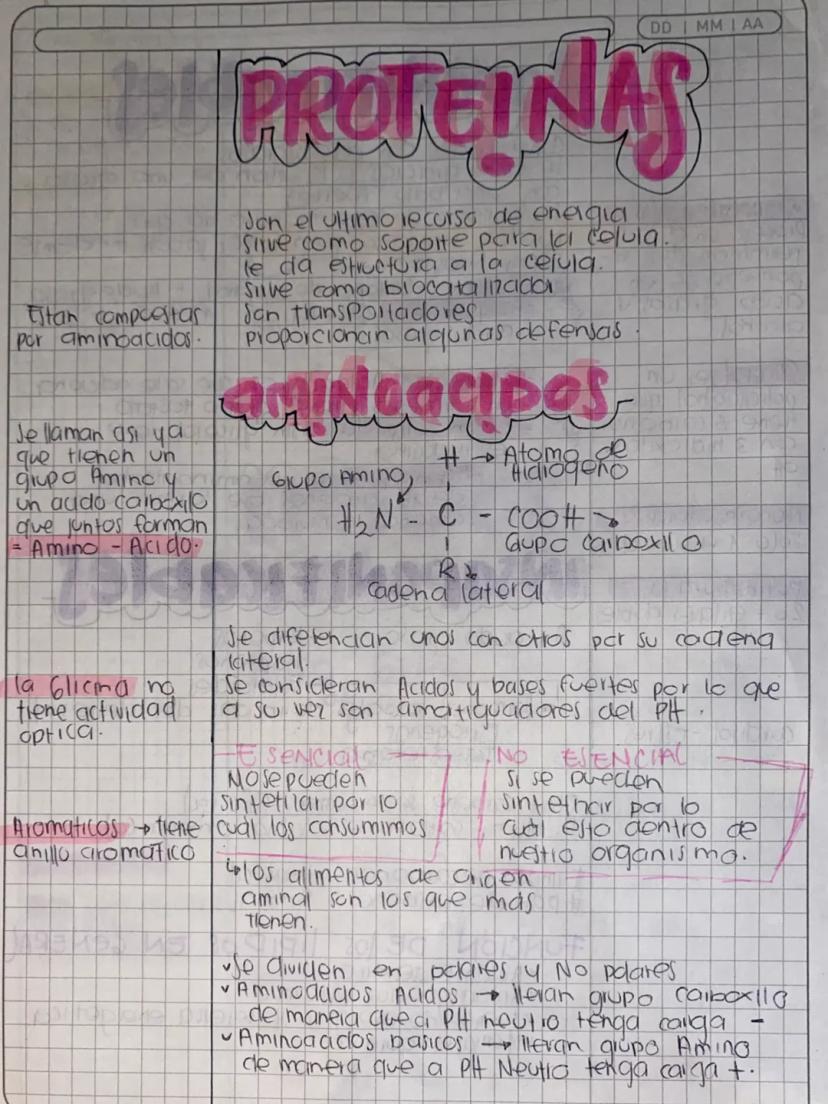 DD | MM | AA
PROTEINAS
Son el ultimo recurso de energia
sirve como soporte para la celula.
le da estructura a la celula.
sirve como biocatalizada
son transportadores
proporcionan algunas defensas.
Estan compuestas
por aminoacidos.
AMINOACIDOS
Se llaman asi ya
que tienen un
grupo Amino y
un acido carboxilo
que juntos forman
= Amino - Acido.
H → Atomo de
Hidrogeno
Grupo Amino
H₂N - C - COOH →
Grupo carboxilo
R
Cadena lateral
Se diferencian unos con otros por su cadena
lateral.
Se consideran Acidos y bases fuertes por lo que
a su vez son amortiguadores del PH.
la Glicina no
tiene actividad
optica.
ESENCIAL
No se pueden
sintetizar por lo
cual los consumimos
NO ESENCIAL
si se pueden
sintetizar por lo
cual esto dentro de
nuestro organismo.
Aromaticos → tiene
anillo aromatico
↳ los alimentos de origen
aminal son los que mas
tienen.
✓ Se dividen en polares y No polares
✓ Aminoacidos Acidos → llevan grupo carboxilo
de manera que a PH neutro tenga carga -
✓ Aminoacidos basicos → llevan grupo Amino
de manera que a PH Neutro tenga carga +.